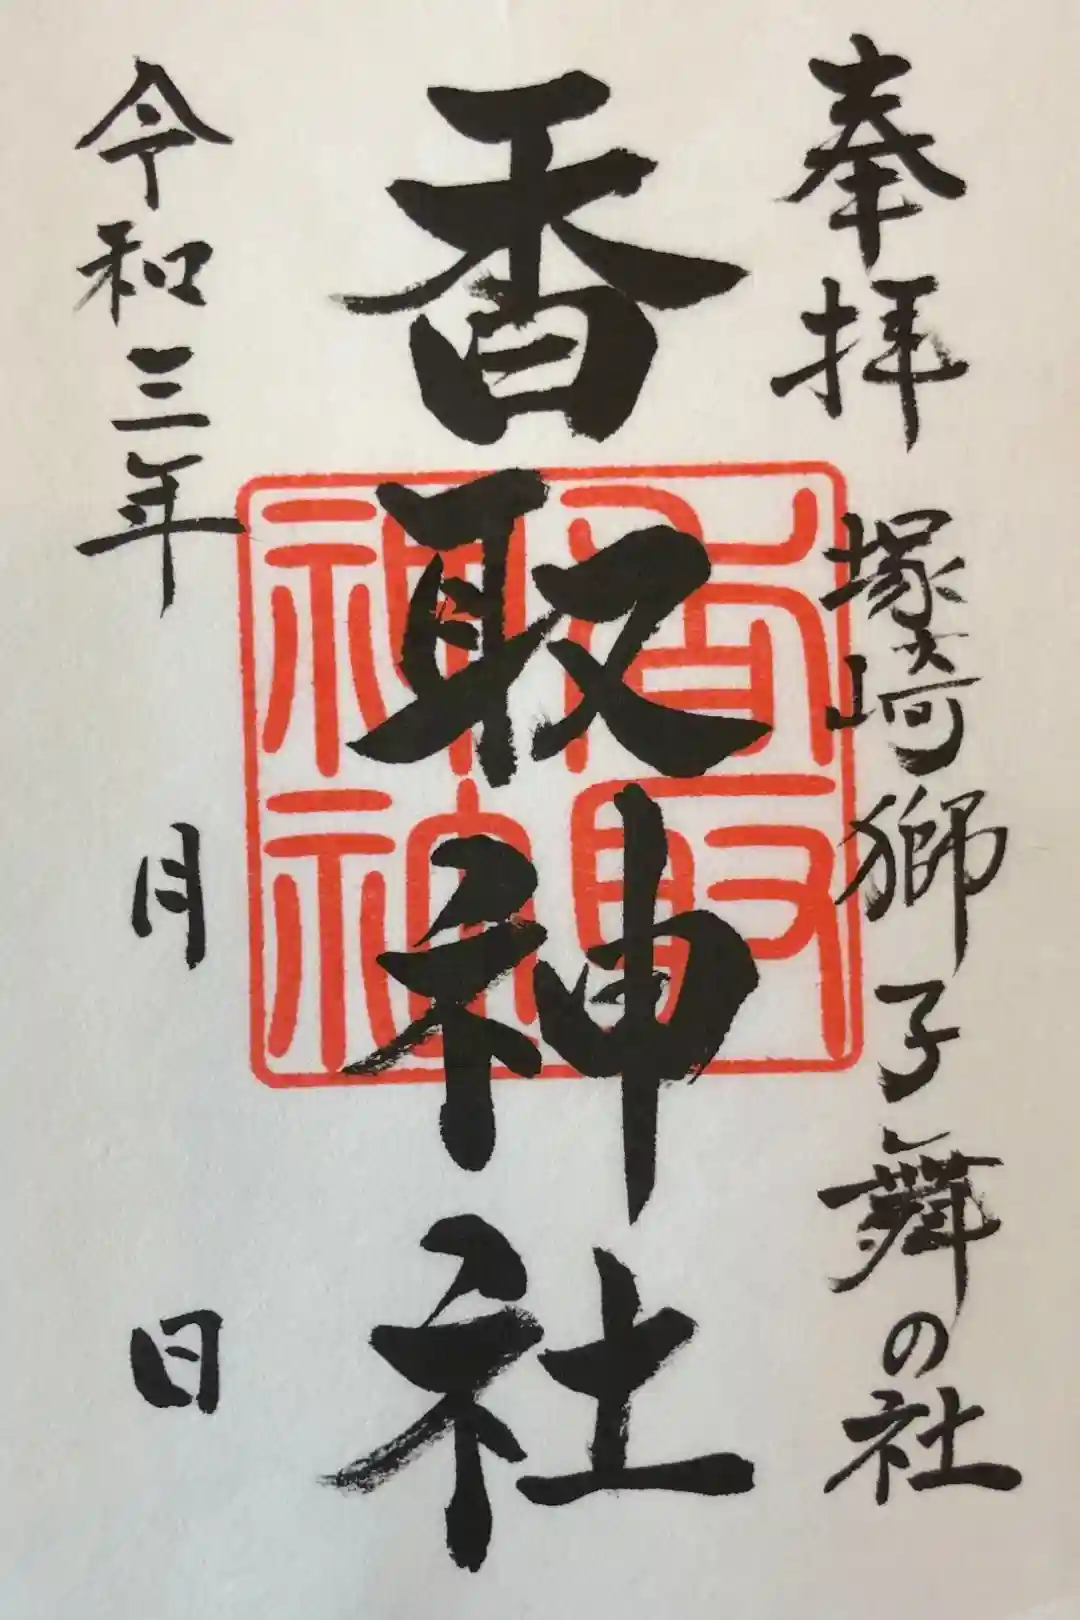 奉拝 塚崎獅子舞の社
香取神社
香取神社
令和三年 月 日